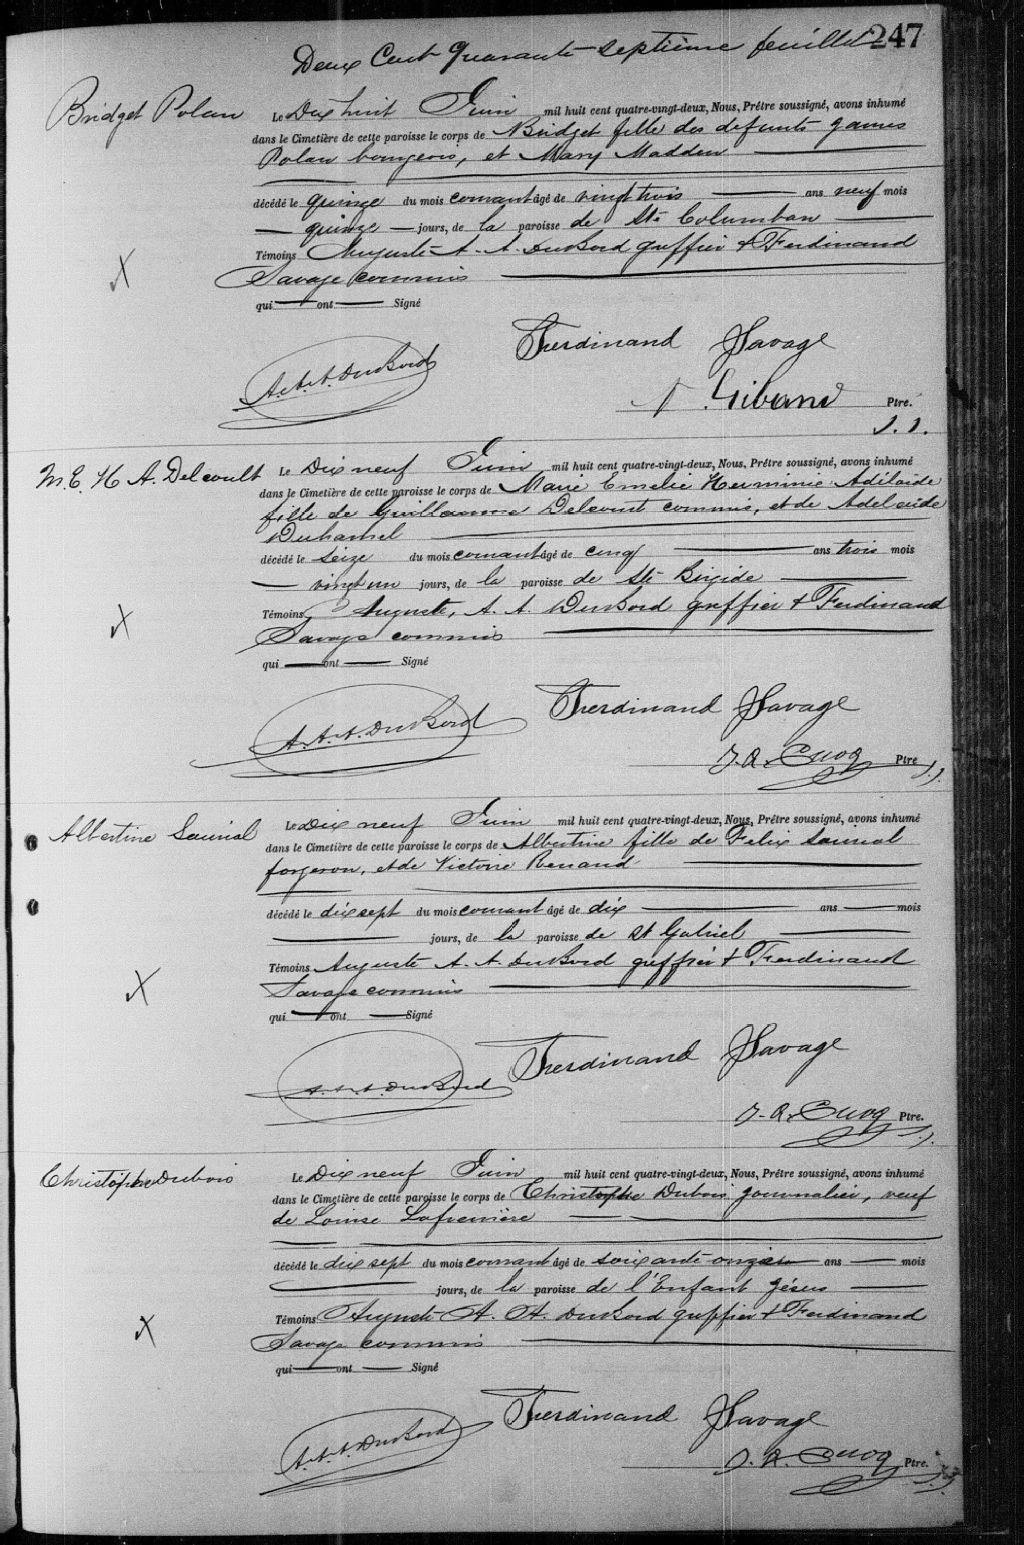 Deux Cent Quarante-septième feuillet 247
Bridget Polan
Le Dix huit Juin mil huit cent quatre-vingt-deux, Nous, Prêtre soussigné, avons inhumé
dans le Cimetière de cette paroisse le corps de Bridget fille des defunts James
Polan bourgeois, et Mary Madden
décédé le quinze du mois courant âgé de vingt trois ans neuf mois
quinze jours, de la paroisse de St Columban
Témoins Auguste A. A. DuBord greffier & Ferdinand
Savage commis
qui ont Signé
Ferdinand Savage
A.A.A. DuBord
Giband Ptre.
S.S.
M. E. H A. Delcourt
Le Dix neuf Juin mil huit cent quatre-vingt-deux, Nous, Prêtre soussigné, avons inhumé
dans le Cimetière de cette paroisse le corps de Marie Emelie Herminie Adélaïde
fille de Guillaume Delcourt commis, et de Adelaïde
Duhamel
décédé le seize du mois courant âgé de cinq ans trois mois
vingt un jours, de la paroisse de Ste Brigide
Témoins Auguste, A. A. DuBord greffier & Ferdinand
Savage commis
qui ont Signé
Ferdinand Savage
A.A.A. DuBord
J. A. Cuoq Ptre
S.S.
Albertine Sauriol
Le Dix neuf Juin mil huit cent quatre-vingt-deux, Nous, Prêtre soussigné, avons inhumé
dans le Cimetière de cette paroisse le corps de Albertine fille de Felix Sauriol
forgeron, et de Victoire Renaud
décédé le dix sept du mois courant âgé de dix ans mois
jours, de la paroisse de St Gabriel
Témoins Auguste A. A. DuBord greffier & Ferdinand
Savage commis
qui ont Signé
Ferdinand Savage
A.A.A. DuBord
J. A. Cuoq Ptre.
S.S.
Christophe Dubois
Le Dix neuf Juin mil huit cent quatre-vingt-deux, Nous, Prêtre soussigné, avons inhumé
dans le Cimetière de cette paroisse le corps de Christophe Dubois journalier, veuf
de Louise Lafrenière
décédé le dix sept du mois courant âgé de soixante onze ans mois
jours, de la paroisse de l'Enfant Jésus
Témoins Auguste A. A. DuBord greffier & Ferdinand
Savage commis
qui ont Signé
Ferdinand Savage
A.A.A. DuBord
J. A. Cuoq Ptre.
S.S.